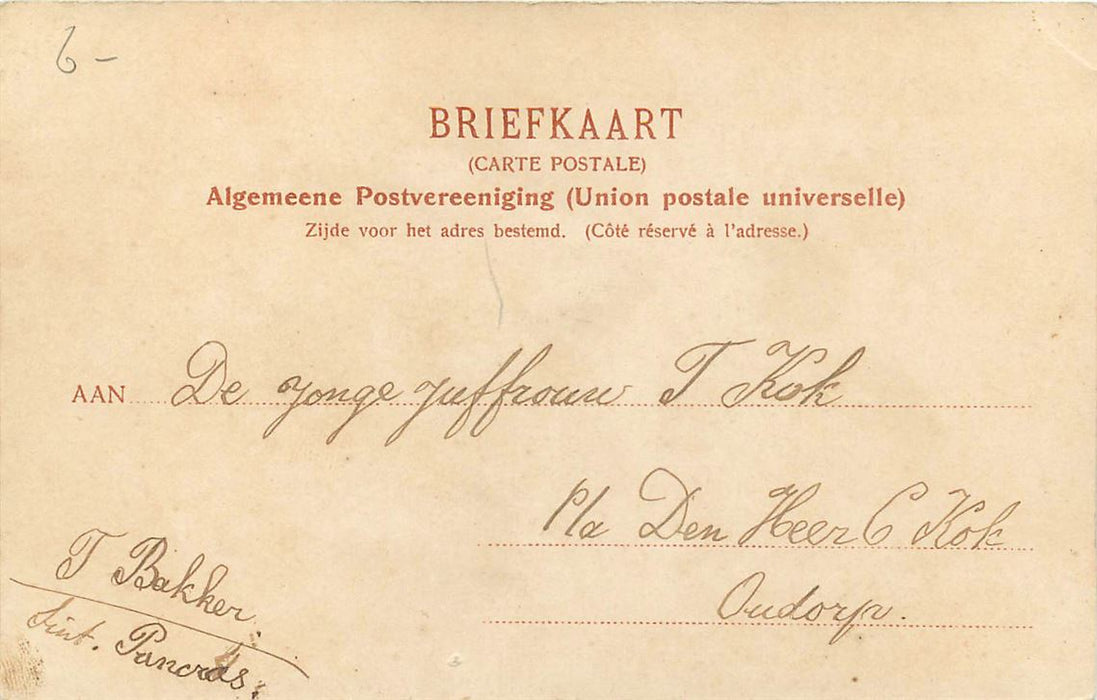 6-
BRIEFKAART
(CARTE POSTALE)
Algemeene Postvereeniging (Union postale universelle)
Zijde voor het adres bestemd. (Côté réservé à l'adresse.)
AAN De jonge juffrouw T Kok
P/a Den Heer C Kok
Oudorp.
T Bakker.
Sint. Pancras.